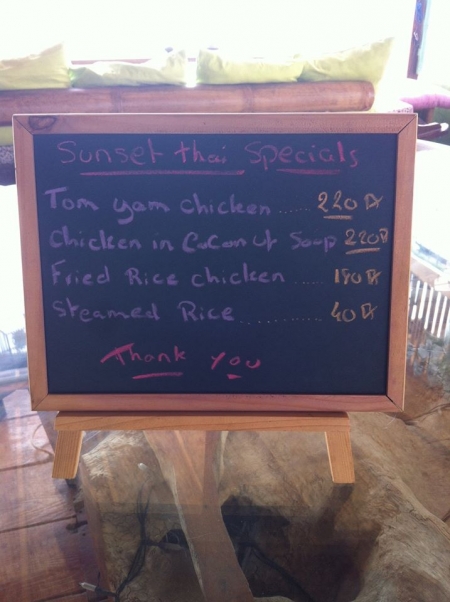 Sunset thai Specials
Tom yam chicken ..... 220 ฿
Chicken in CoConut Soup 220฿
Fried Rice chicken ..... ฿
Steamed Rice ............ 40 ฿
Thank you